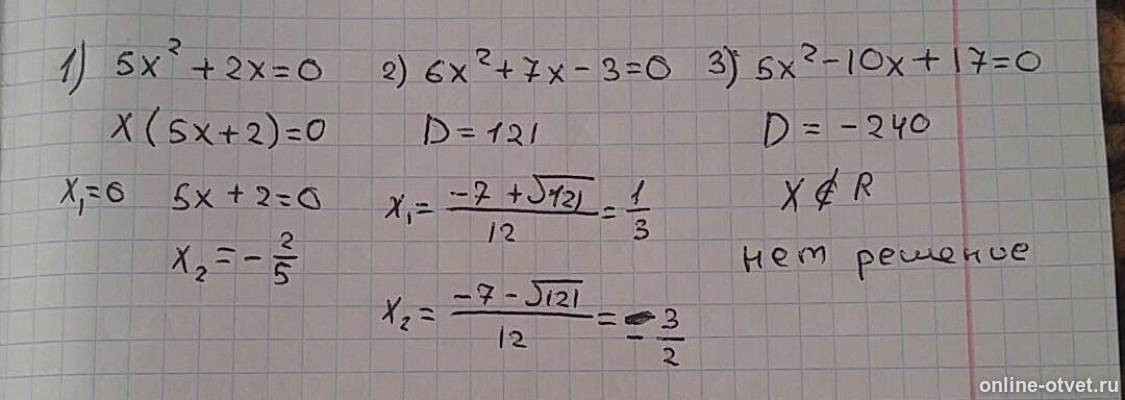 1) 5x² + 2x = 0
x(5x + 2) = 0
x₁ = 0 5x + 2 = 0
x₂ = - 2/5
2) 6x² + 7x - 3 = 0
D = 121
x₁ = (-7 + √121)/12 = 1/3
x₂ = (-7 - √121)/12 = - 3/2
3) 5x² - 10x + 17 = 0
D = -240
x ∉ R
нет решение
online-otvet.ru